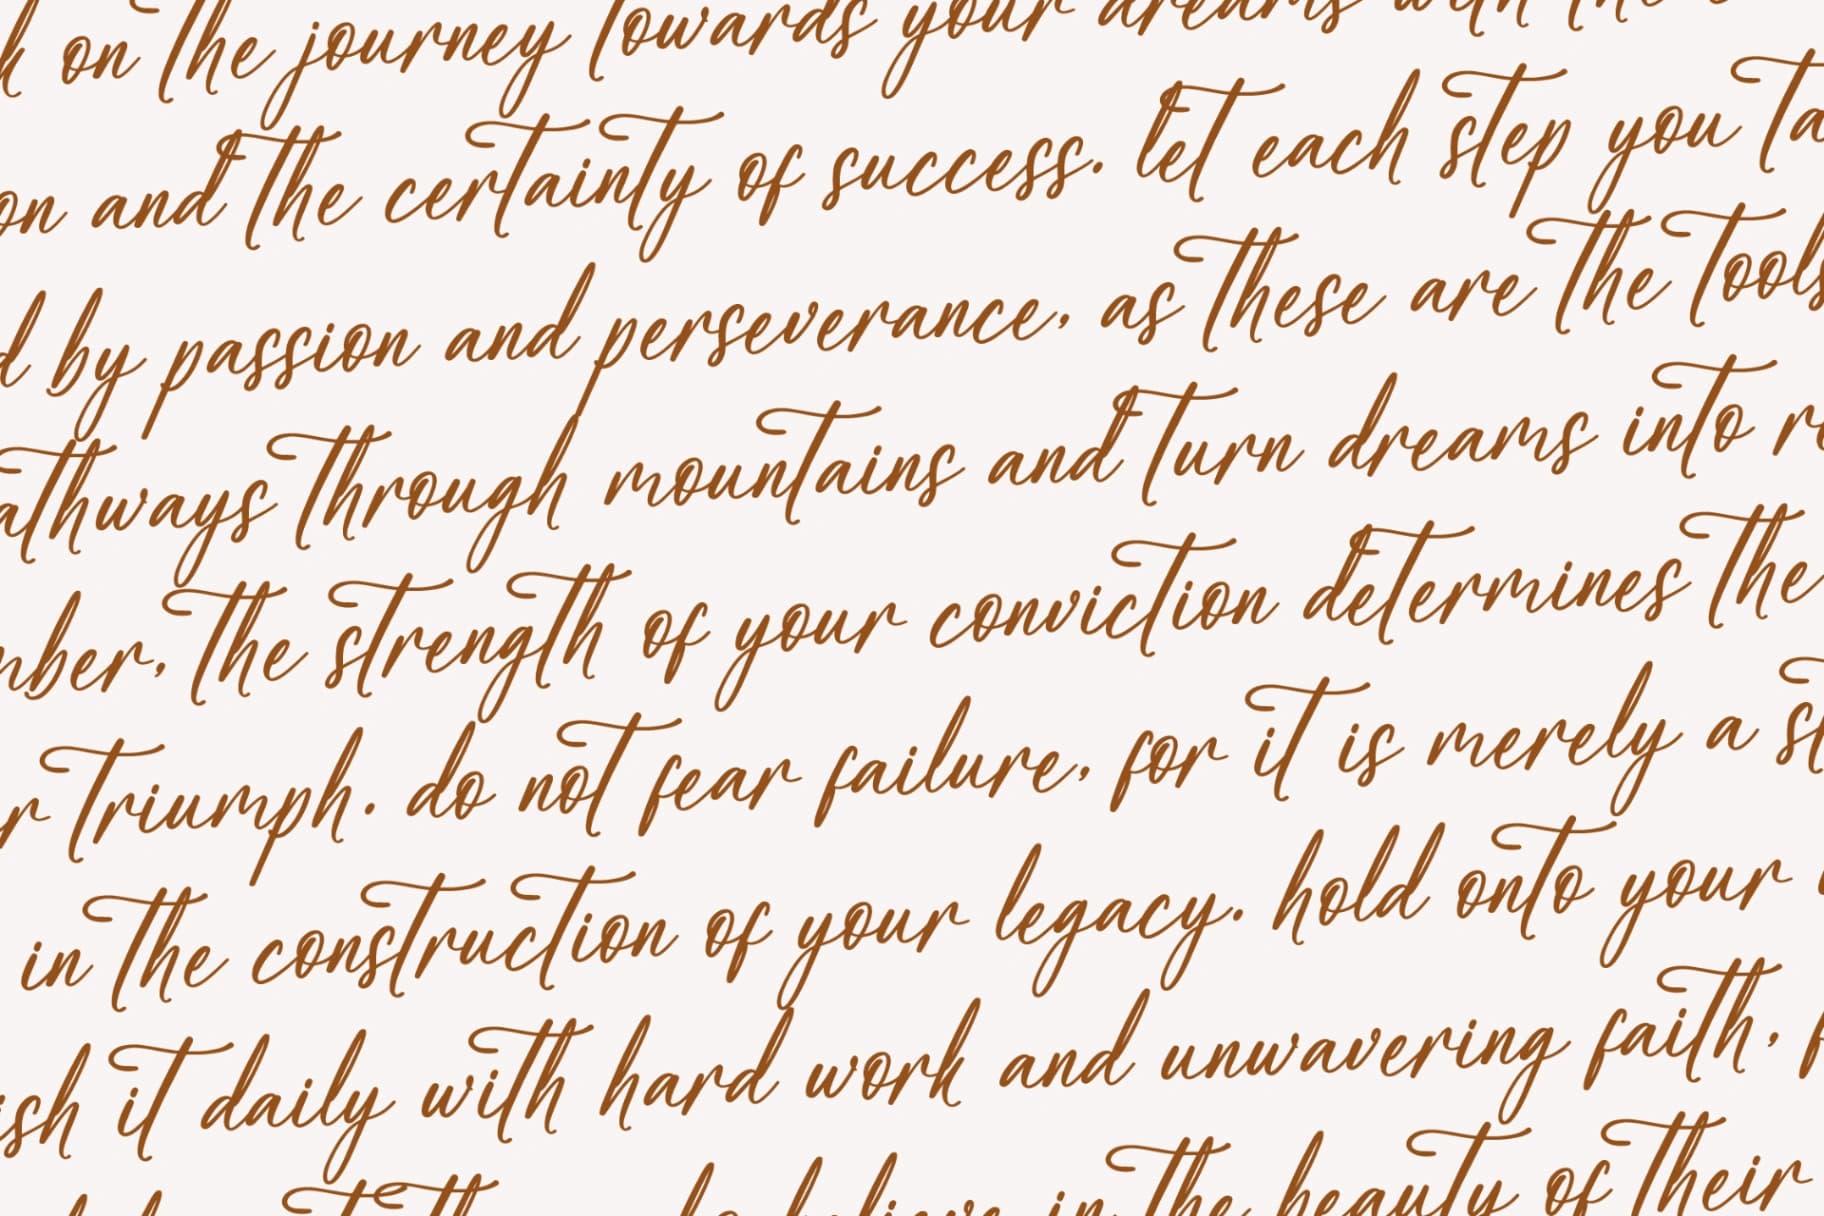 on the journey towards your dreams with the
on and the certainty of success. let each step you ta
d by passion and perseverance, as these are the tools
athways through mountains and turn dreams into re
mber, the strength of your conviction determines the
r triumph. do not fear failure, for it is merely a st
in the construction of your legacy. hold onto your
ish it daily with hard work and unwavering faith, f
believe in the beauty of their